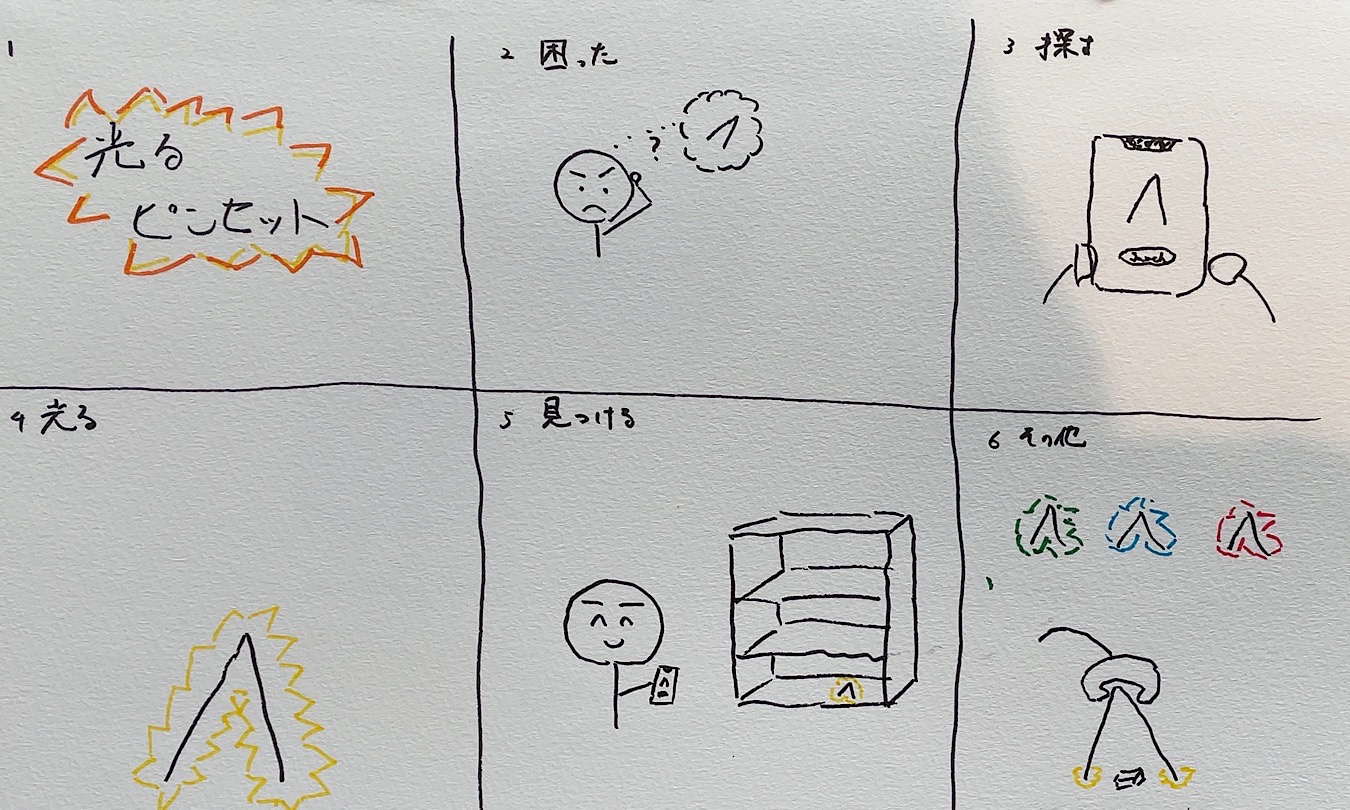 1
光る
ピンセット
2 困った
?
3 探す
4 光る
5 見つける
6 その他